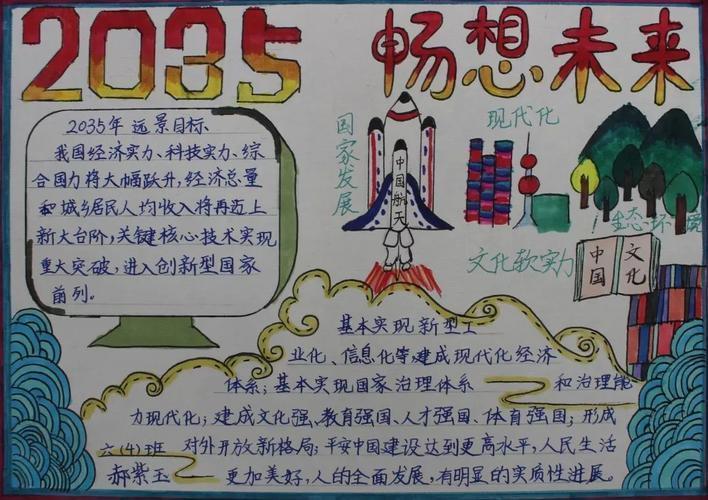 2035 畅想未来
2035年远景目标、
我国经济实力、科技实力、综
合国力将大幅跃升,经济总量
和城乡居民人均收入将再迈上
新大台阶,关键核心技术实现
重大突破,进入创新型国家
前列。
国家发展
中国航天
现代化
生态环境
文化软实力
中国
文化
基本实现新型工
业化、信息化等,建成现代化经济
体系;基本实现国家治理体系 和治理能
力现代化;建成文化强、教育强国、人才强国、体育强国;形成
对外开放新格局;平安中国建设达到更高水平,人民生活
更加美好,人的全面发展,有明显的实质性进展。
六(4)班
郝紫玉